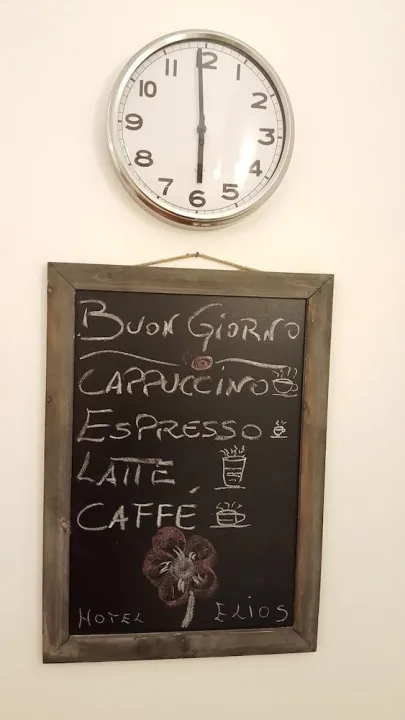 12
1
2
3
4
5
6
7
8
9
10
11
BUON GIORNO
CAPPUCCINO
ESPRESSO
LATTE
CAFFÉ
HOTEL ELIOS